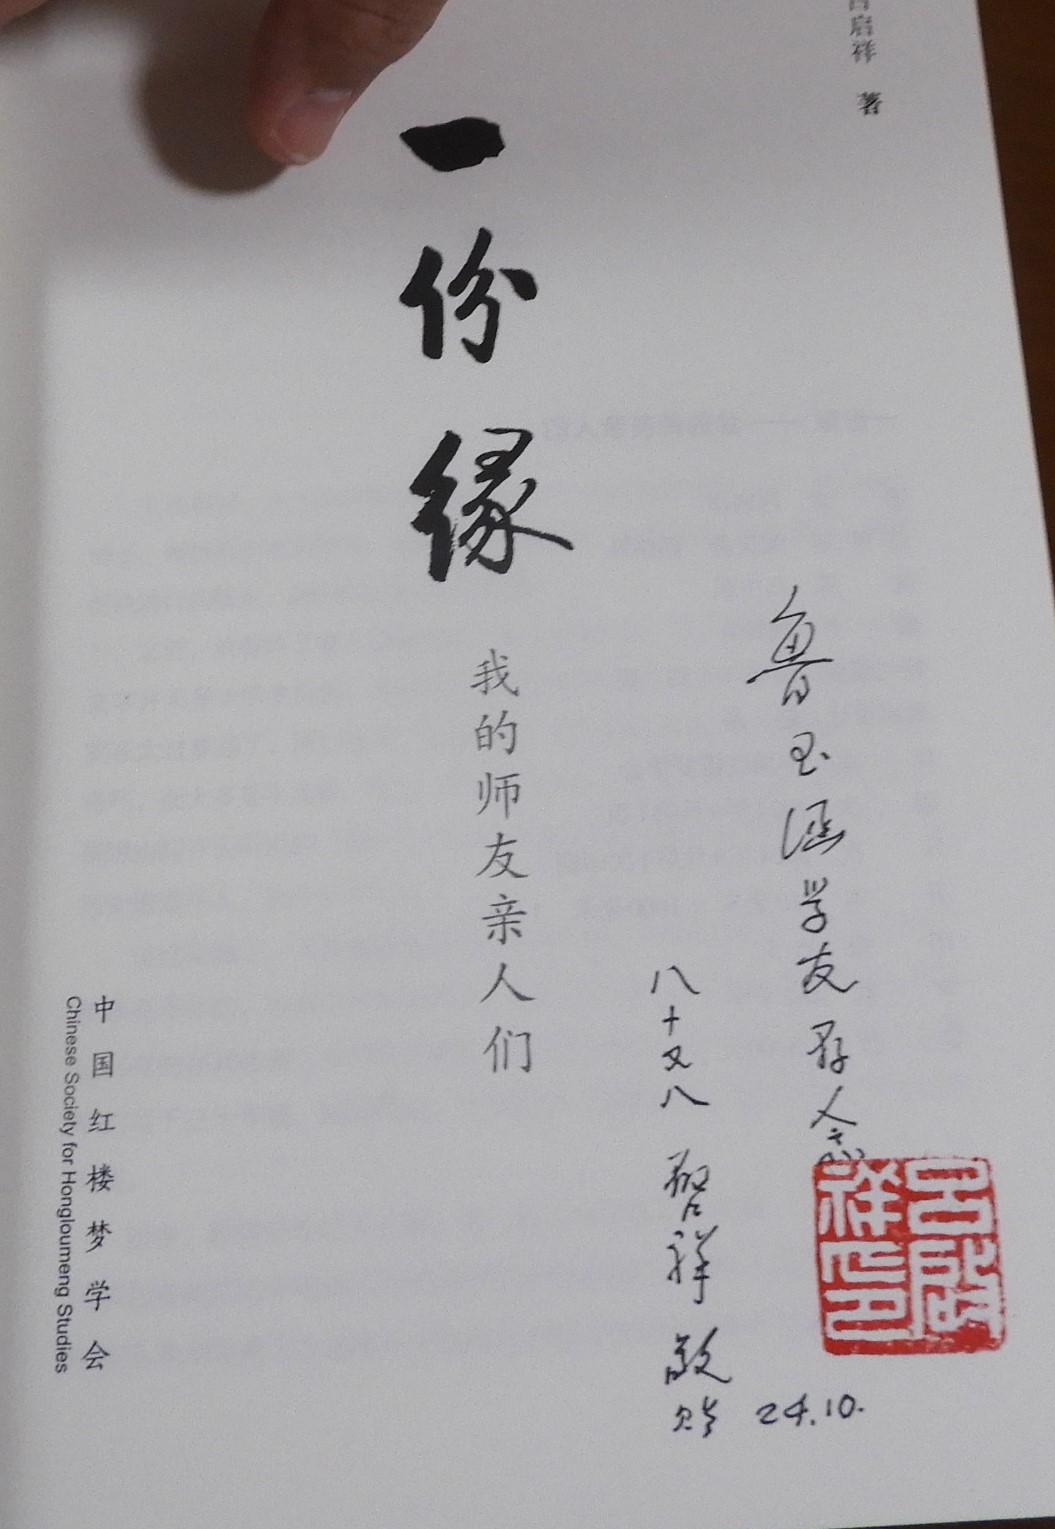 吕启祥 著
一份缘
我的师友亲人们
鲁玉涵学友存念
八十又八 启祥 敬贻
24.10.
吕启祥印
中国红楼梦学会
Chinese Society for Hongloumeng Studies